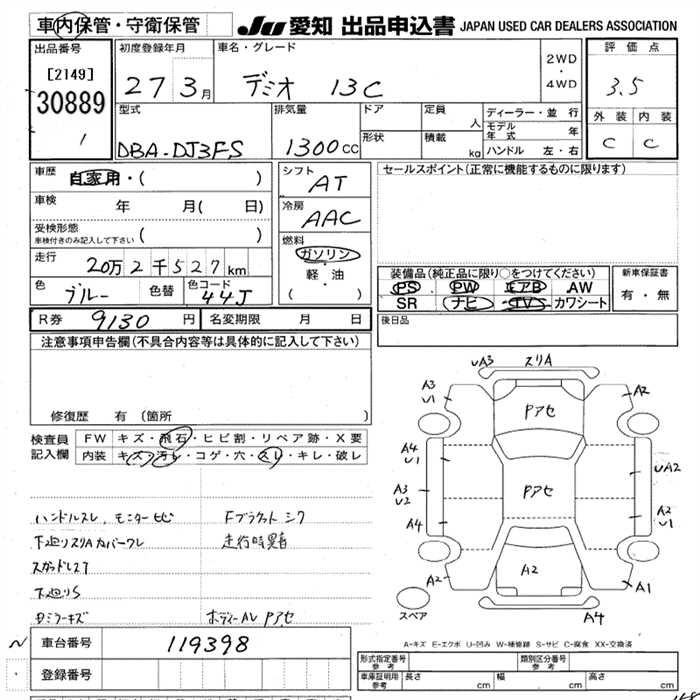 車内保管・守衛保管
JU 愛知 出品申込書 JAPAN USED CAR DEALERS ASSOCIATION
出品番号
[2149]
30889
1
初度登録年月
27 3月
車名・グレード
デミオ 13C
2WD
・
4WD
評価点
3.5
外装 内装
C C
型式
DBA-DJ3FS
排気量
1300cc
ドア
形状
定員
人
積載
kg
ディーラー・並行
モデル年式 年
ハンドル 左・右
車歴
自家用・( )
車検
年 月( 日)
受検形態
車検付きのみ記入して下さい ( )
走行
20万2千527km
色
ブルー
色替
色コード
44J
シフト
AT
冷房
AAC
燃料
ガソリン
・
軽・油
( )
セールスポイント(正常に機能するものに限ります)
装備品(純正品に限り○をつけてください)
PS PW エアB AW
SR ナビ TV カワシート
新車保証書
有・無
R券 9130円
名変期限 月 日
後日品
注意事項申告欄(不具合内容等は具体的に記入して下さい)
修復歴 有(箇所
検査員
記入欄
FW キズ・飛石・ヒビ割・リペア跡・X要
内装 キズ・汚レ・コゲ・穴・スレ・キレ・破レ
ハンドルスレ、モニターヒビ
下廻リスリAカバーワレ
下廻りS
走行時異音
ボディーAU Pアセ
車台番号 119398
登録番号
UA3 スリA
A3
U1
A2
Pアセ
A4
U1
UA2
A3
U2
Pアセ
A4
A2
U1
A2
A2
A1
スペア
A4
A-キズ E-エクボ U-凹み W-補修跡 S-サビ C-腐食 XX-交換済
形式指定番号
参考
類別区分番号
参考
車庫証明用
参考
長さ cm 幅 cm 高さ cm